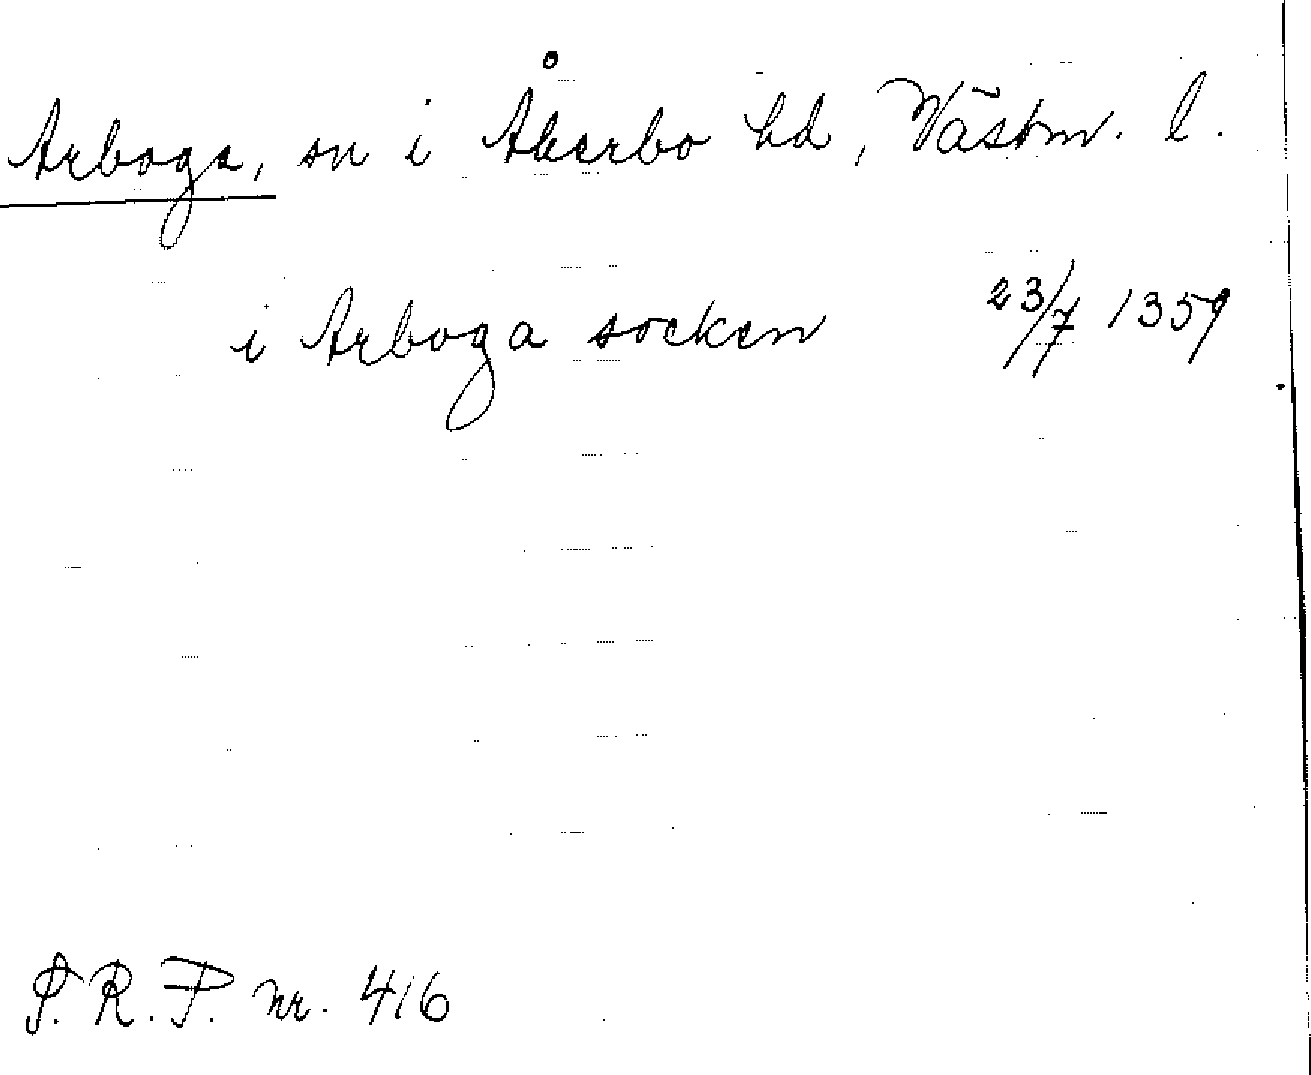 Arboga, sn i Åkerbo hd, Västm. l.
i Arboga socken 23/7 1359
S.R.P. nr. 416